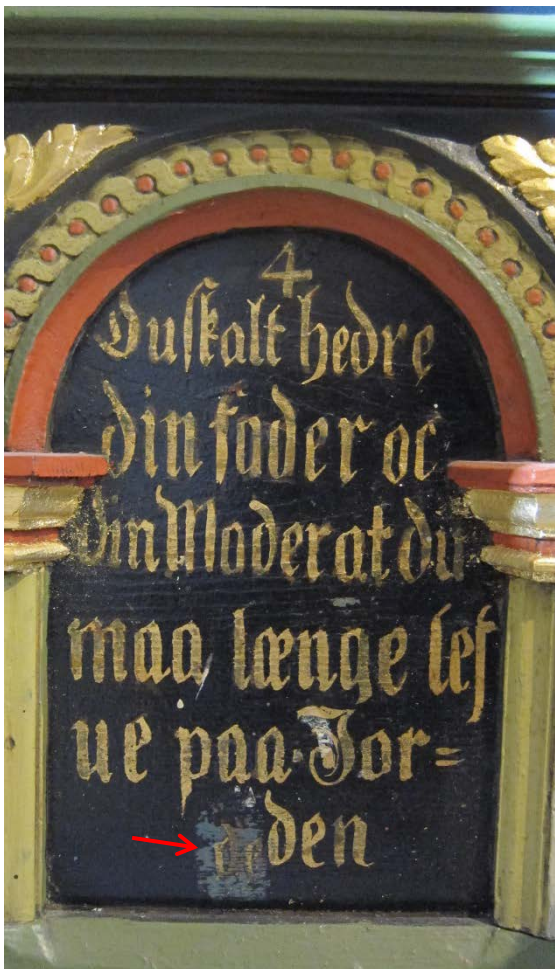 4
Du skalt hedre
din fader oc
din Moder at du
maa længe lef
ue paa Jor=
den